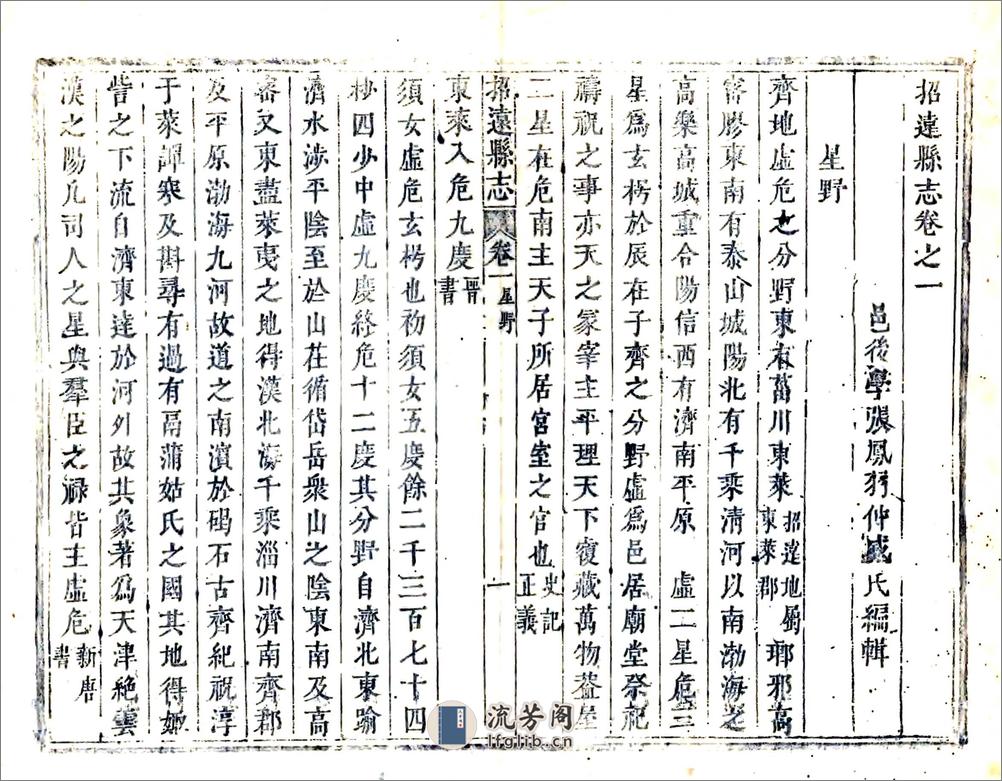 招遠縣志卷之一
邑後學張鳳羽仲威氏編輯
星野
齊地虛危之分野東有菑川東萊招遠地屬東萊郡瑯邪高
密膠東南有泰山城陽北有千乘清河以南渤海之
高樂高城重合陽信西有濟南平原 虛二星危三
星為玄枵於辰在子齊之分野虛為邑居廟堂祭祀
禱祝之事亦天之冢宰主平理天下覆藏萬物蓋屋
二星在危南主天子所居宮室之官也史記正義
招遠縣志 卷一 星野 一
東萊入危九度晉書
須女虛危玄枵也初須女五度餘二千三百七十四
秒四少中虛九度終危十二度其分野自濟北東踰
濟水涉平陰至於山茌循岱岳衆山之陰東南及高
密又東盡萊夷之地得漢北海千乘淄川濟南齊郡
及平原渤海九河故道之南濱於碣石古齊紀祝淳
于萊譚寒及斟尋有過有鬲蒲姑氏之國其地得娵
訾之下流自濟東達於河外故其象著為天津絶雲
漢之陽凡司人之星與羣臣之祿皆主虛危新唐書
流芳阁
lfglib.cn